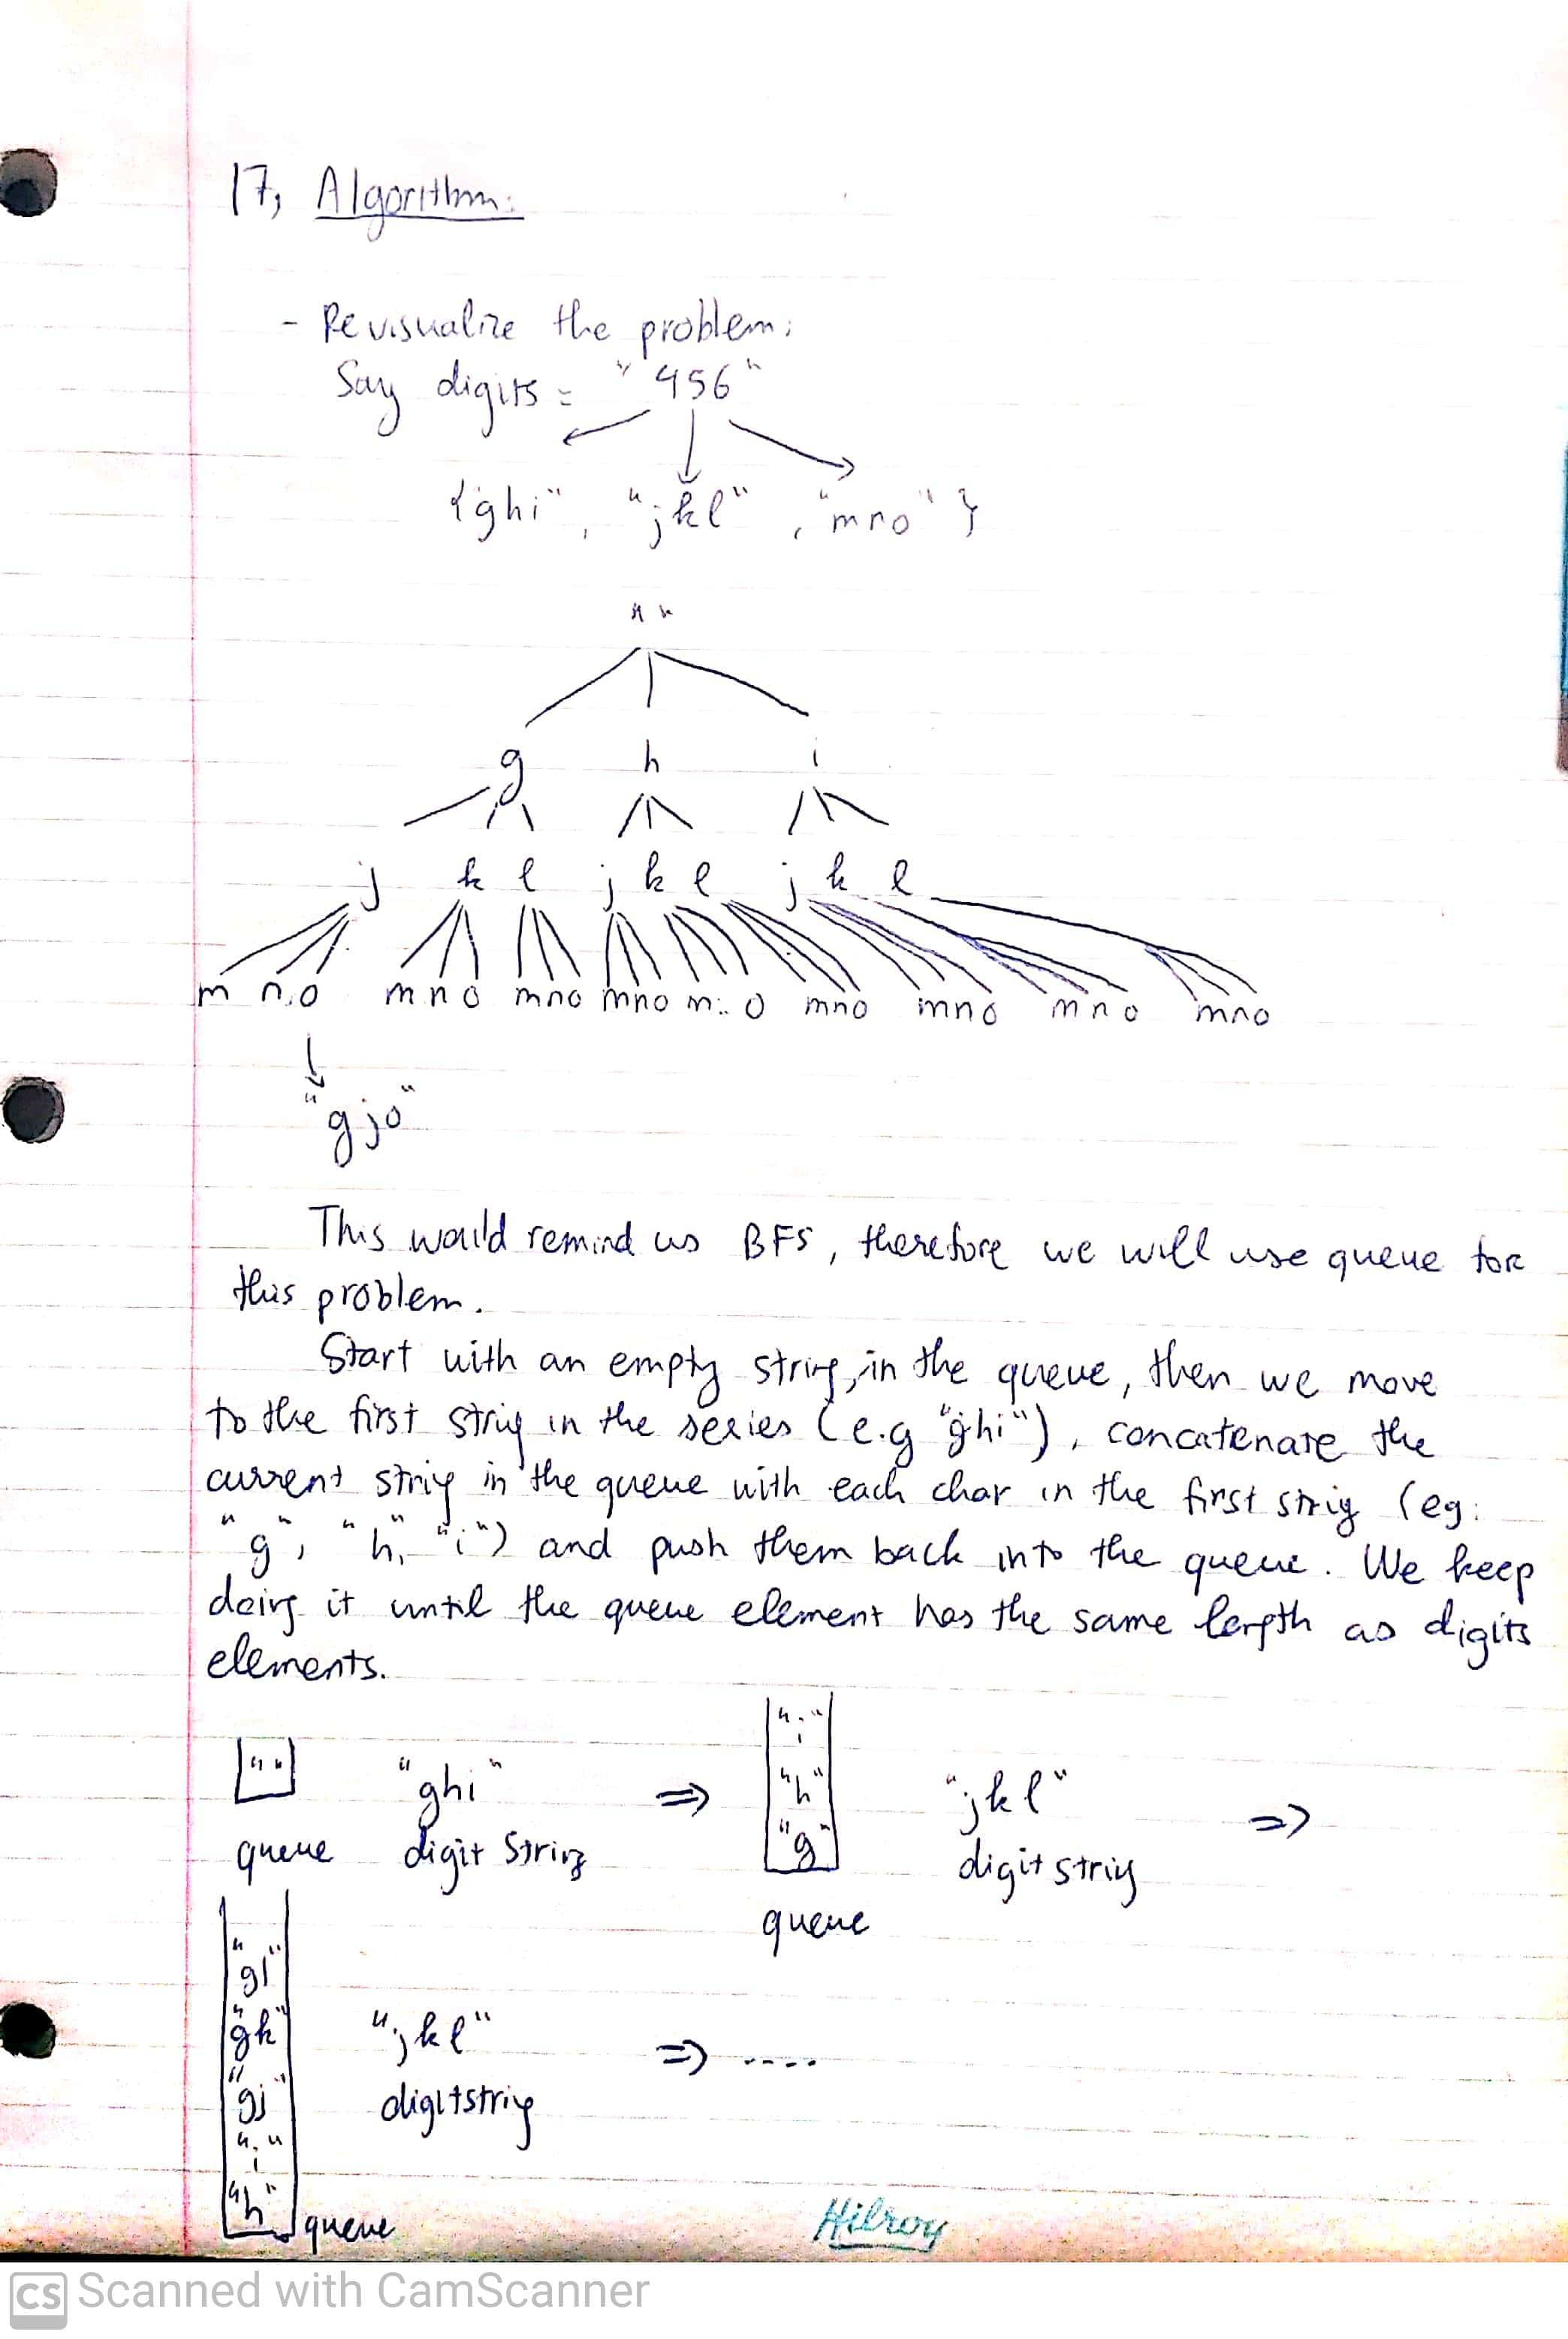 17, Algorithm:
- Revisualize the problem:
Say digits = "456"
{"ghi", "jkl", "mno"}
""
g h i
j k l j k l j k l
m n o m n o mno mno m n o mno mno mno mno
"gjo"
This would remind us BFS, therefore we will use queue for
this problem.
Start with an empty string in the queue, then we move
to the first string in the series (e.g "ghi"), concatenate the
current string in the queue with each char in the first string (eg:
"g", "h", "i") and push them back into the queue. We keep
doing it until the queue element has the same length as digits
elements.
"" "ghi" => "i" "h" "g" "jkl" =>
queue digit string queue digit string
"gl"
"gk" "jkl" => .....
"gj" digit string
"i"
"h" queue
Hilroy
CS Scanned with CamScanner